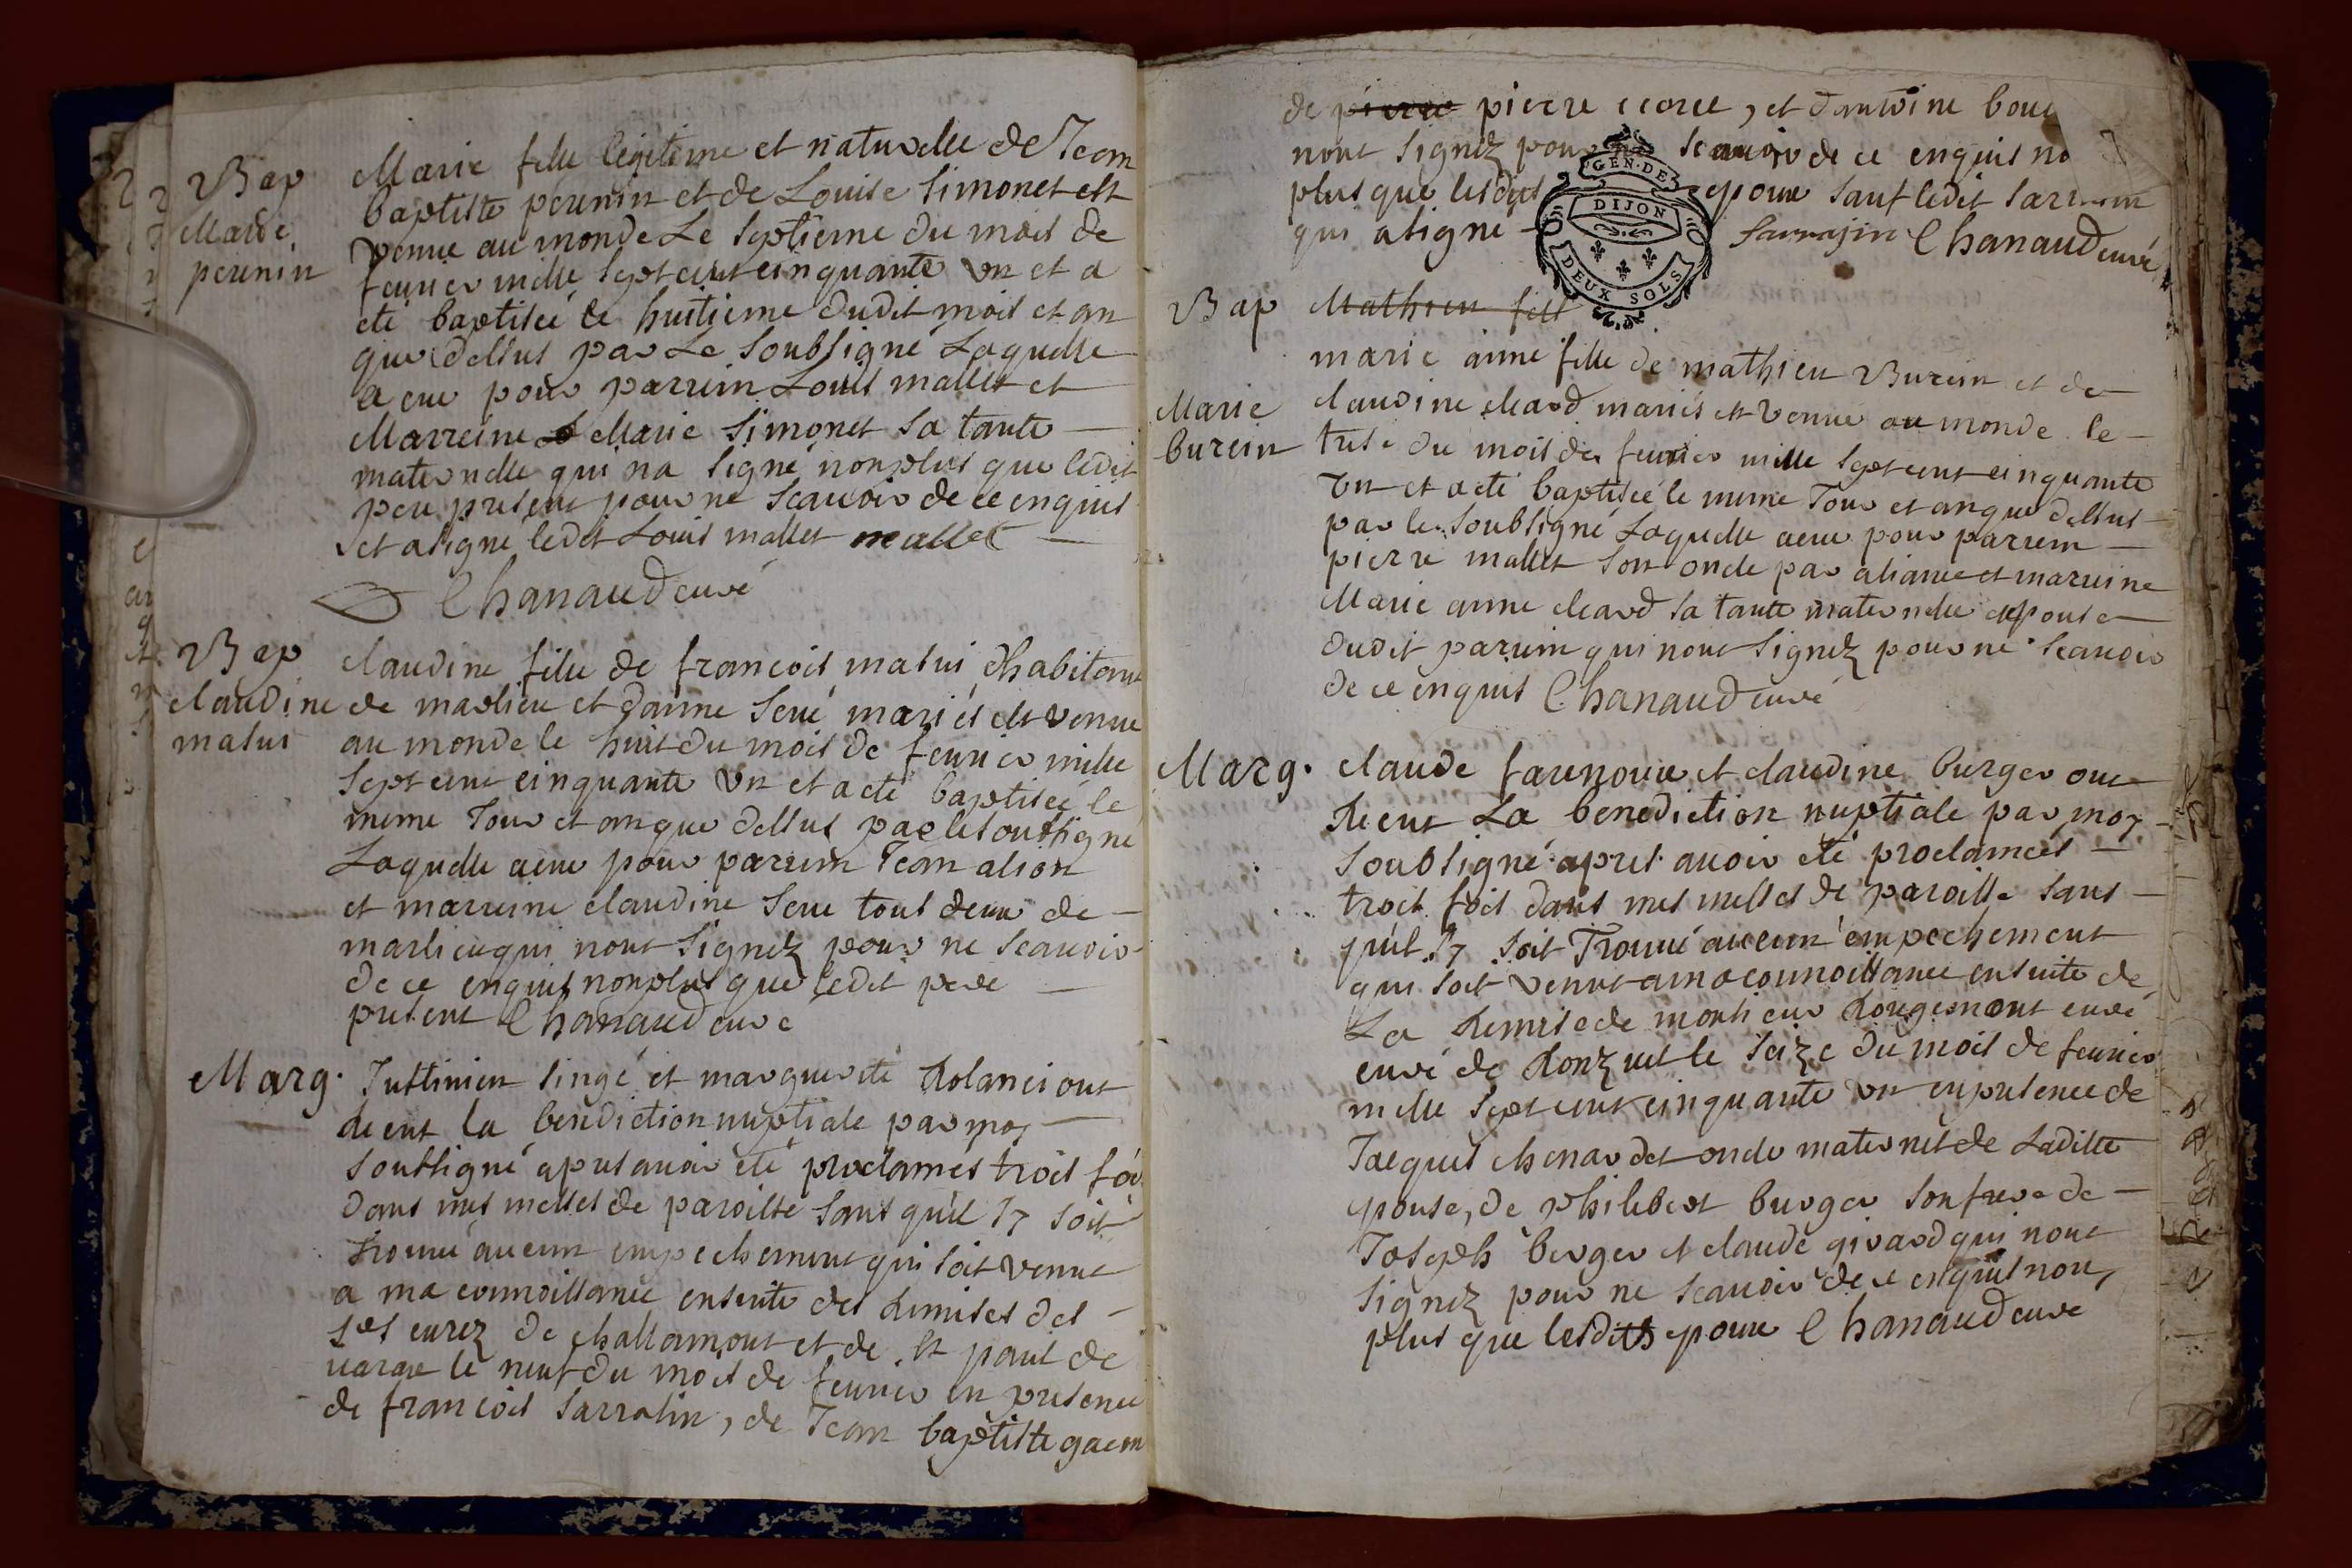 Bap
Marie
perenin
Marie fille légitime et naturelle de Jean
baptiste perenin et de Louise simonet est
venue au monde Le septieme du mois de
feurier mille sept cent cinquante un et a
eté baptisée le huitieme dudit mois et an
que dessus par Le soubsigné Laquelle
a eue pour parrein Louis mallet et
Marreine Marie simonet sa tante
maternelle qui na signé nonplus que ledit
pere present pour ne scauoir de ce enquis
et a signé ledit Louis mallet mallet
Chanaud curé
Bap
claudine
masui
claudine fille de francois masui habitant
de marlieu et danne seué mariés est venue
au monde le huit du mois de feurier mille
sept cent cinquante un et a eté baptisée le
meme Jour et an que dessus par le soubsigné
Laquelle a eue pour parrein Jean alion
et marreine claudine seue tous deux de
marlieu qui nont signez pour ne scauoir
de ce enquis nonplus que ledit pere
present Chanaud curé
Marg. Justinien singé et marguerite Rolanei ont
Receut la benediction nuptiale par moy
soubsigné apres auoir eté proclamés trois foi
dans mes messes de paroisse sans quil sy soit
trouué aucun empechement qui soit venut
a ma connoissance ensuite des Remises des
srs curez de challamont et de st paul de
uarax le neuf du mois de feurier en presence
de francois sarrasin, de Jean baptiste gacon
de pierre pierre ecoree, et dantoine bou
nont signez pour ne scauoir de ce enquis no
plus que lesdits epoux sauf ledit sarrasin
qui a signé sarrasin Chanaud curé
GEN. DE
DIJON
DEUX SOLS
Bap Mathieu fill
Marie
burein
marie anne fille de mathieu Burein et de
claudine cleard mariés est venue au monde le
trese du mois de feurier mille sept cent cinquante
un et a eté baptisée le meme Jour et an que dessus
par le soubsigné Laquelle a eue pour parrein
pierre mallet son oncle par aliance et marreine
Marie anne cleard sa tante maternelle epouse
dudit parrein qui nont signez pour ne scauoir
de ce enquis Chanaud curé
Marg. claude farenoue et claudine burger ont
Receut La benediction nuptiale par moy
soubsigné apres auoir eté proclamés
trois fois dans mes messes de paroisse sans
quil sy soit Trouué aucun empechement
qui soit venut a ma connoissance ensuite de
La Remise de monsieur Rougemont curé
curé de Ronzuel le seize du mois de feurier
mille sept cent cinquante un en presence de
Jacques chenardet oncle maternel de Laditte
epouse, de philibert burger son frere de
Joseph berger et claude girard qui nont
signez pour ne scauoir de ce enquis non
plus que lesdits epoux Chanaud curé